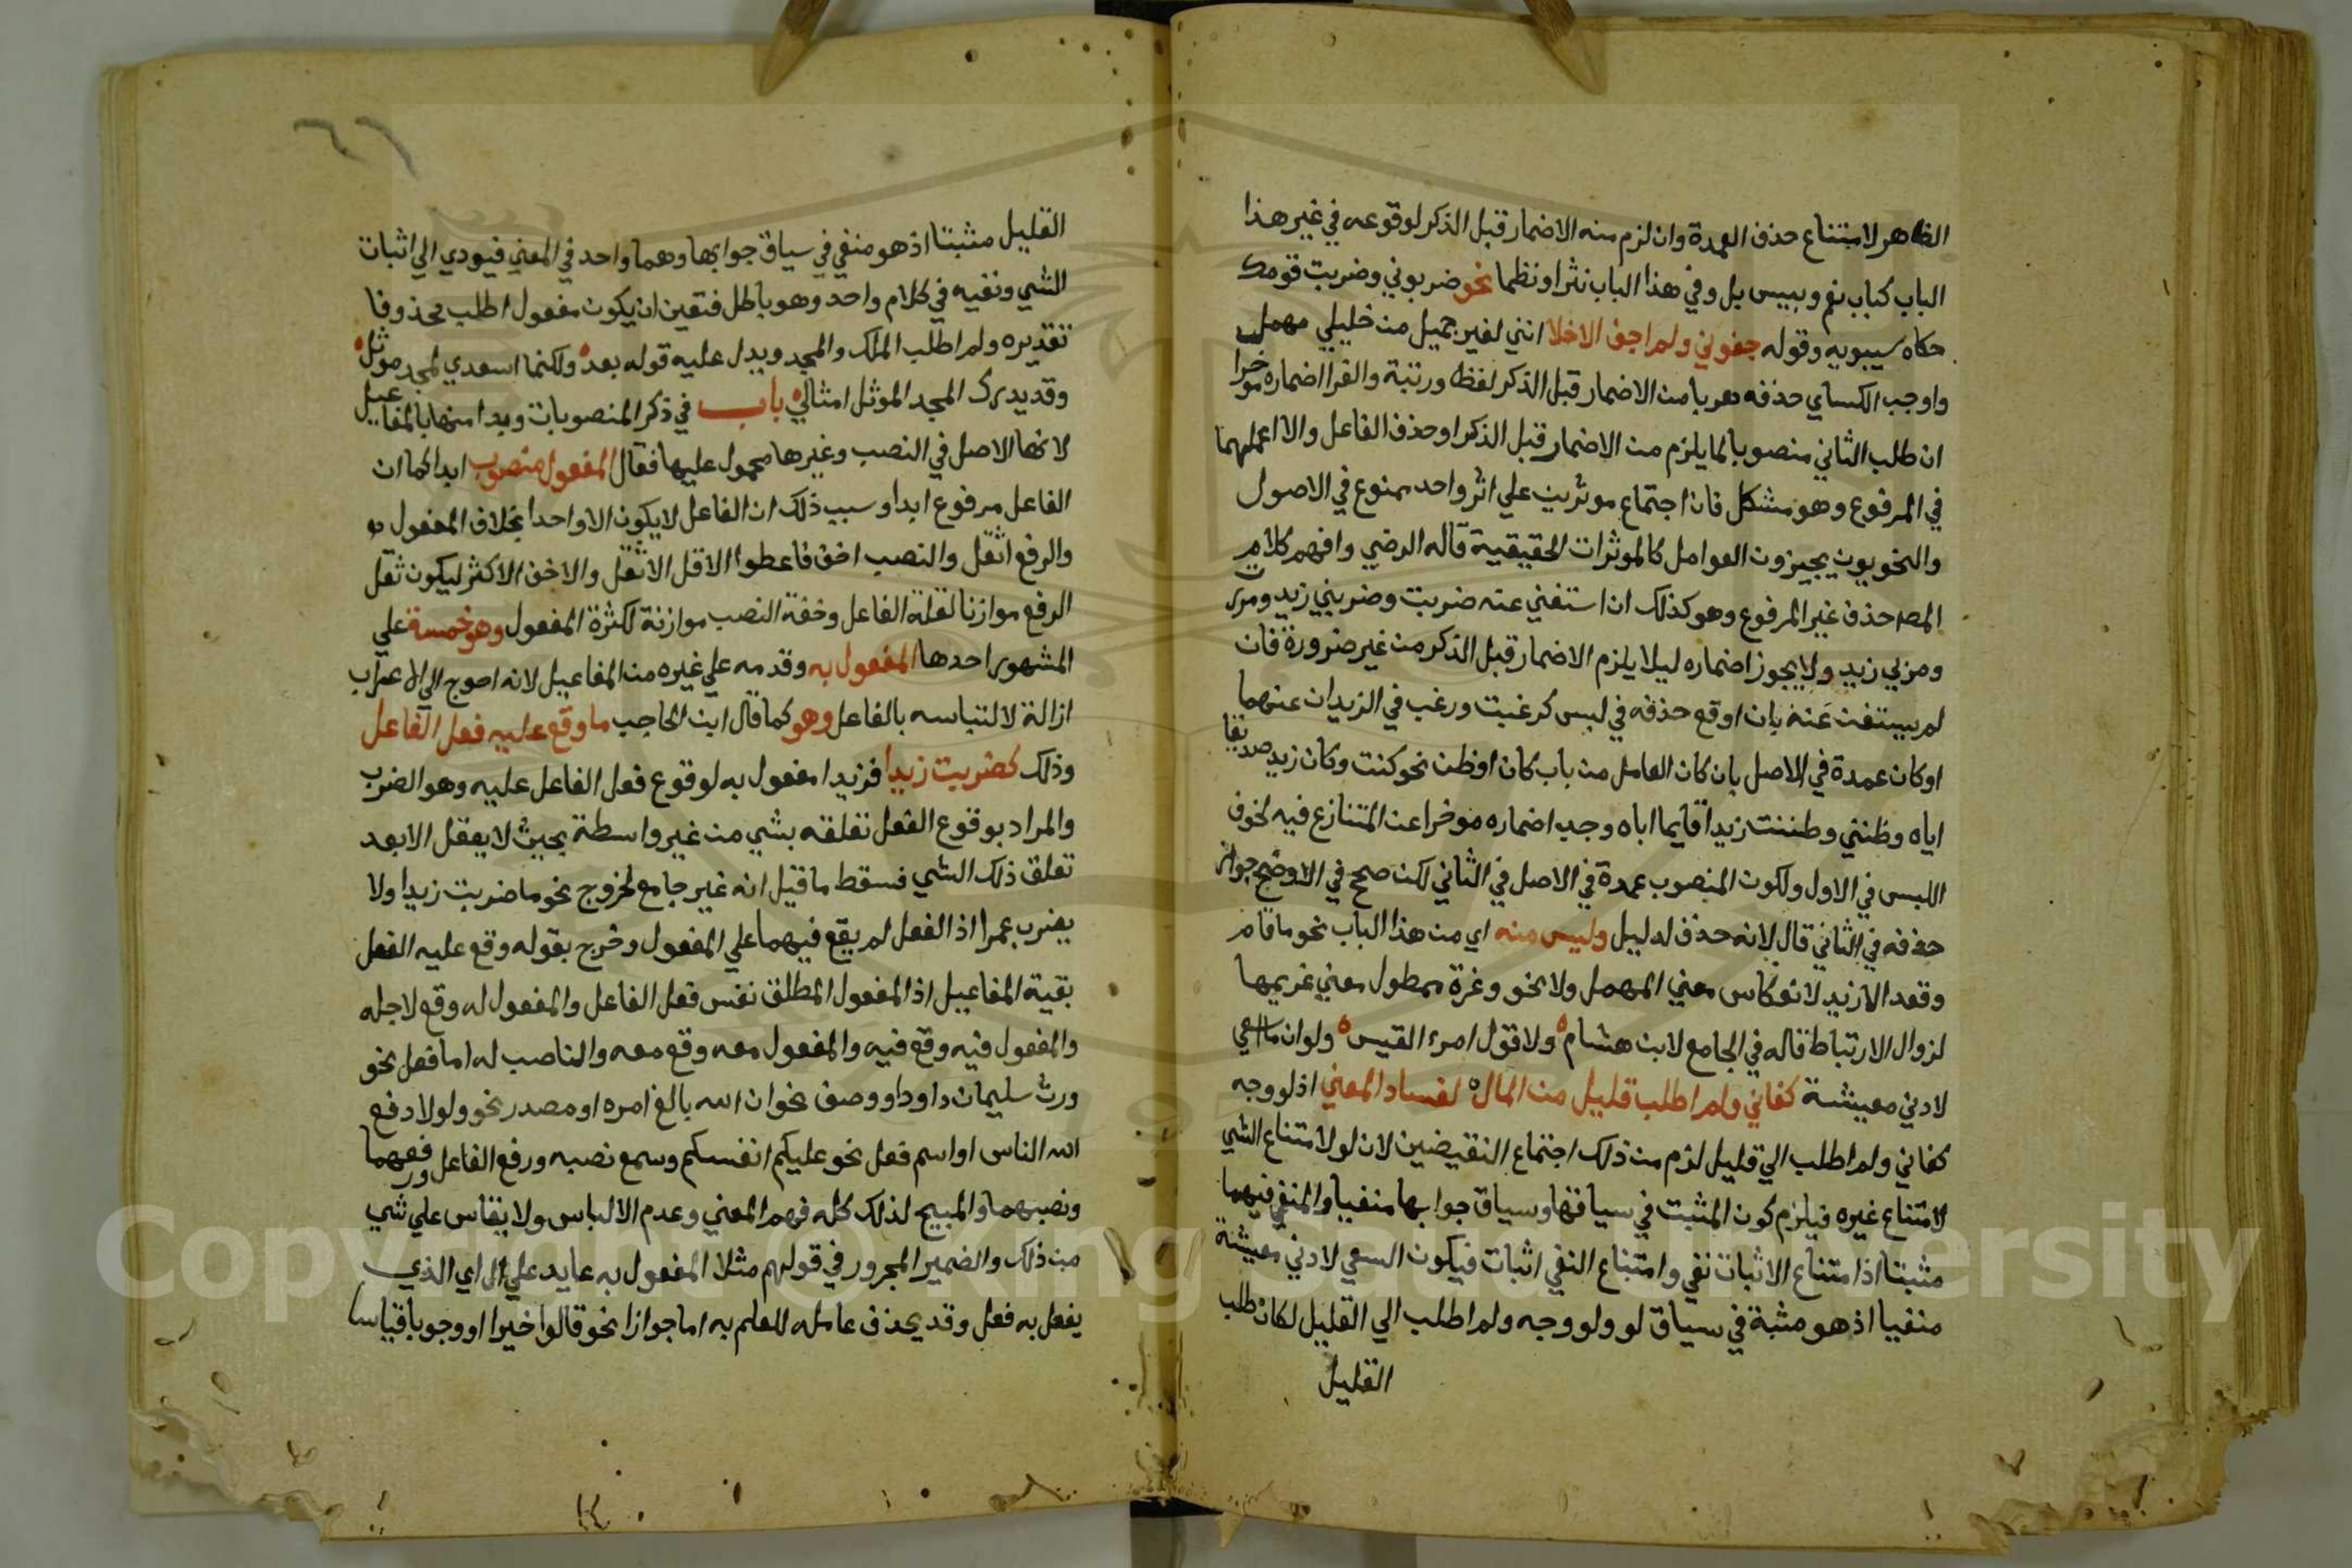 الظاهر لامتناع حذف العمدة وان لزم منه الاضمار قبل الذكر لوقوعه في غير هذا
الباب كباب نعم وبيس بل وفي هذا الباب نثرا ونظما نحو ضربوني وضربت قومك
حكاه سيبويه وقوله جفوني ولم اجف الاخلا انني لغير جميل من خليلي مهمل
واوجب الكساي حذفه هربا من الاضمار قبل الذكر لفظا ورتبة والفرا اضماره موخرا
ان طلب الثاني منصوبا لما يلزم من الاضمار قبل الذكر او حذف الفاعل والا اعملهما
في المرفوع وهو مشكل فان اجتماع موثرين علي اثر واحد ممنوع في الاصول
والنحويون يجيزون العوامل كالموثرات الحقيقية قاله الرضي وافهم كلام
المص حذف غير المرفوع وهو كذلك ان استغني عنه ضربت وضربني زيد ومررت
ومربي زيد ولا يجوز اضماره ليلا يلزم الاضمار قبل الذكر من غير ضرورة فان
لم يستغن عنه بان اوقع حذفه في لبس كرغبت ورغب في الزيدان عنهما
او كان عمدة في الاصل بان كان العامل من باب كان او ظن نحو كنت وكان زيد صديقا
اياه وظنني وظننت زيدا قايما اياه وجب اضماره موخرا عن المتنازع فيه لخوف
اللبس في الاول ولكون المنصوب عمدة في الاصل في الثاني لكن صحح في الاوضح جواز
حذفه في الثاني قال لانه حذف لدليل وليس منه اي من هذا الباب نحو ما قام
وقعد الا زيد لانعكاس معني المهمل ولا نحو وعزة ممطول معني غريمها
لزوال الارتباط قاله في الجامع لابن هشام ولا قول امرء القيس ولو ان ما اسعي
لادني معيشة كفاني ولم اطلب قليل من المال لفساد المعني اذ لو وجه
كفاني ولم اطلب الي قليل لزم من ذلك اجتماع النقيضين لان لو لامتناع الشي
لامتناع غيره فيلزم كون المثبت في سياقها وسياق جوابها منفيا والمنفي فيهما
مثبتا اذ امتناع الاثبات نفي وامتناع النفي اثبات فيكون السعي لادني معيشة
منفيا اذ هو مثبة في سياق لو ولو وجه ولم اطلب الي القليل لكان طلب
القليل
القليل مثبتا اذ هو منفي في سياق جوابها وهما واحد في المعني فيودي الي اثبات
الشي ونفيه في كلام واحد وهو باطل فتعين ان يكون مفعول اطلب محذوفا
تقديره ولم اطلب الملك والمجد ويدل عليه قوله بعده ولكنما اسعي لمجد موثل
وقد يدرك المجد الموثل امثالي باب في ذكر المنصوبات وبدا منها بالمفاعيل
لانها الاصل في النصب وغيرها محمول عليها فقال المفعول منصوب ابدا كما ان
الفاعل مرفوع ابدا وسبب ذلك ان الفاعل لا يكون الا واحدا بخلاف المفعول به
والرفع اثقل والنصب اخف فاعطوا الاقل الاثقل والاخف الاكثر ليكون ثقل
الرفع موازنا لقلة الفاعل وخفة النصب موازنة لكثرة المفعول وهو خمسة علي
المشهور احدها المفعول به وقدمه علي غيره من المفاعيل لانه احوج الي الاعراب
ازالة لالتباسه بالفاعل وهو كما قال ابن الحاجب ما وقع عليه فعل الفاعل
وذلك كضربت زيدا فزيدا مفعول به لوقوع فعل الفاعل عليه وهو الضرب
والمراد بوقوع الفعل تعلقه بشي من غير واسطة بحيث لا يعقل الا بعد
تعلق ذلك الشي فسقط ما قيل انه غير جامع لخروج نحو ما ضربت زيدا ولا
يضرب عمرا اذ الفعل لم يقع فيهما علي المفعول وخرج بقوله وقع عليه الفعل
بقية المفاعيل اذ المفعول المطلق نفس فعل الفاعل والمفعول له وقع لاجله
والمفعول فيه وقع فيه والمفعول معه وقع معه والناصب له اما فعل نحو
ورث سليمان داود او وصف نحو ان الله بالغ امره او مصدر نحو ولولا دفع
الله الناس او اسم فعل نحو عليكم انفسكم وسمع نصبه ورفع الفاعل ورفعهما
ونصبهما والمبيح لذلك كله فهم المعني وعدم الالباس ولا يقاس علي شي
من ذلك والضمير المجرور في قولهم مثلا المفعول به عايد علي ال اي الذي
يفعل به فعل وقد يحذف عامله للعلم به اما جوازا نحو قالوا خيرا او وجوبا قياسا